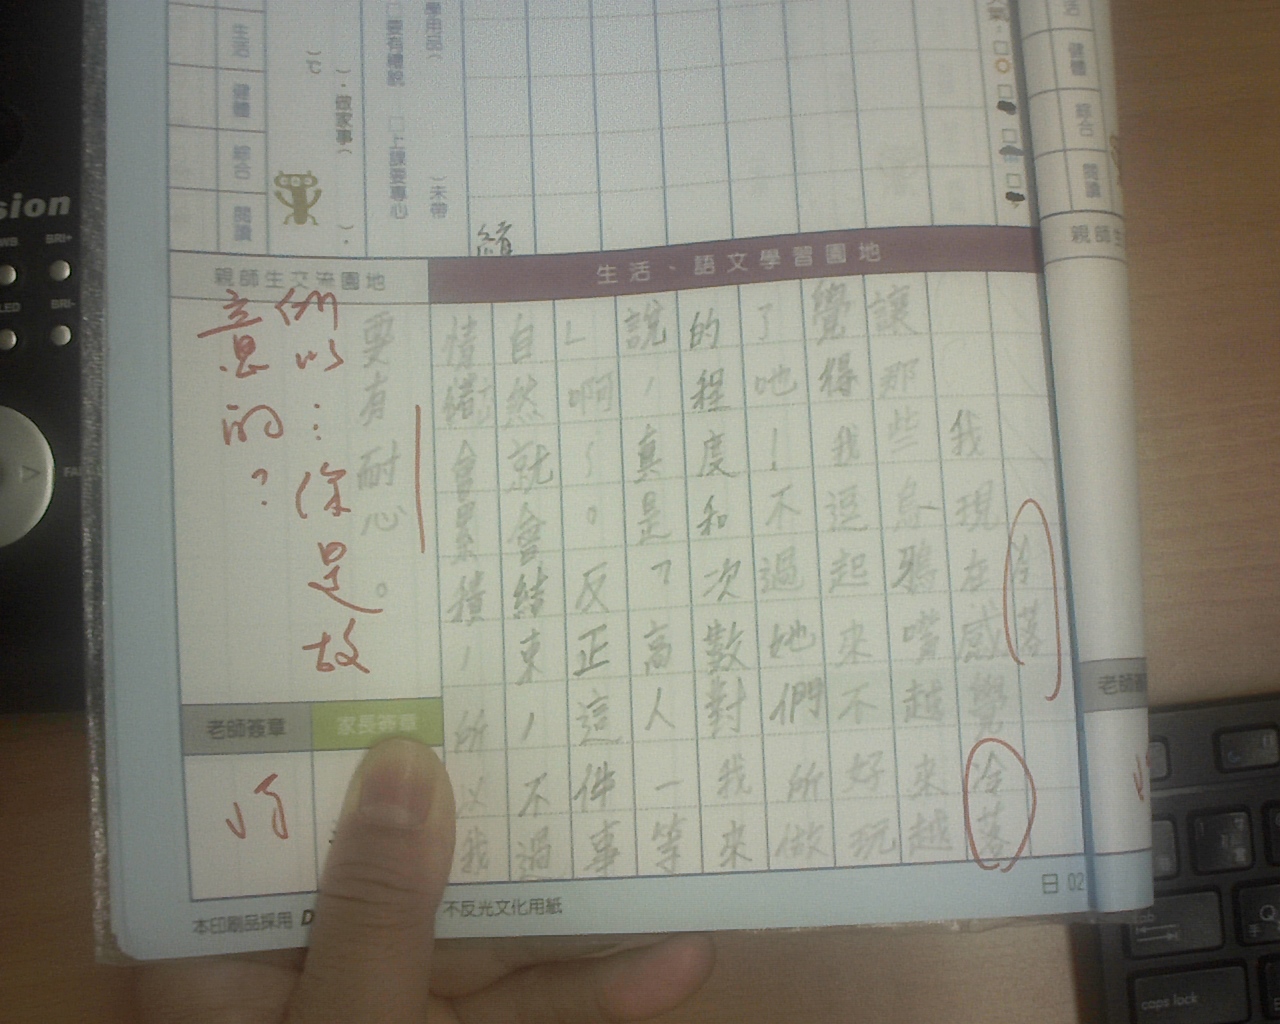 生活
健體
綜合
閱讀
℃
)，做家事(
)。
□要有禮貌 □上課要專心
學用品(
)未帶
生活、語文學習園地
親師生交流園地
冷落
我現在感覺冷落
讓那些烏鴉嘴越來越
覺得我逗起來不好玩
了吧！不過她們所做
的程度和次數對我來
說，真是「高人一等
」啊～。反正這件事
自然就會結束，不過
情緒會累積，所以我
要有耐心。
所以：你是故
意的？
老師簽章
家長簽章
本印刷品採用
不反光文化用紙
日 02
健體
綜合
閱讀
親師生
老師簽
sion
BRI+
BRI-
caps lock
Q